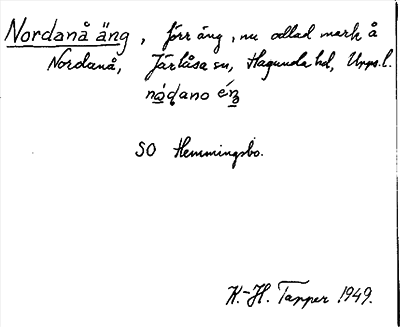 Nordanå äng, förr äng, nu odlad mark å
Nordanå, Järlåsa sn, Hagunda hd, Upps. l.
SO Hemmingsbo.
K.-H. Tapper 1949.